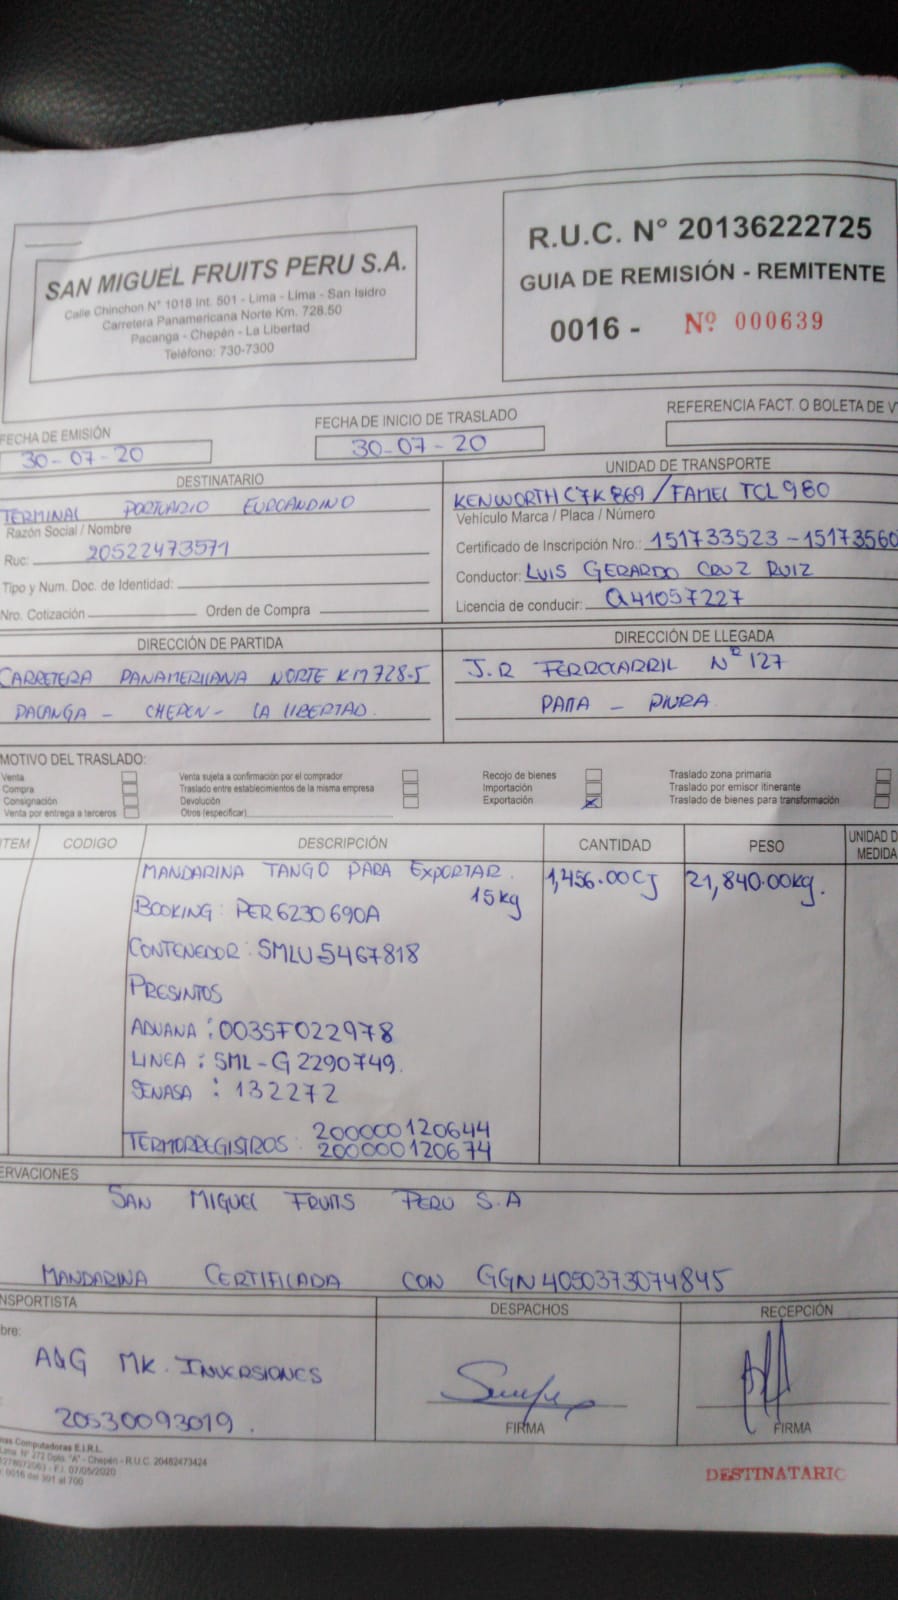 SAN MIGUEL FRUITS PERU S.A.
Calle Chinchon N° 1018 Int. 501 - Lima - Lima - San Isidro
Carretera Panamericana Norte Km. 728.50
Pacanga - Chepén - La Libertad
Teléfono: 730-7300
R.U.C. N° 20136222725
GUIA DE REMISIÓN - REMITENTE
0016 - Nº 000639
FECHA DE EMISIÓN
30-07-20
FECHA DE INICIO DE TRASLADO
30-07-20
REFERENCIA FACT. O BOLETA DE V
DESTINATARIO
TERMINAL PORTUARIO EUROANDINO
Razón Social / Nombre
Ruc: 20522473571
Tipo y Num. Doc. de Identidad:
Nro. Cotización Orden de Compra
UNIDAD DE TRANSPORTE
KENWORTH C7K 869 / FAMEC TCL 980
Vehículo Marca / Placa / Número
Certificado de Inscripción Nro.: 151733523 - 15173560
Conductor: LUIS GERARDO CRUZ RUIZ
Licencia de conducir: Q41057227
DIRECCIÓN DE PARTIDA
CARRETERA PANAMERICANA NORTE KM 728.5
PACANGA - CHEPEN - LA LIBERTAD.
DIRECCIÓN DE LLEGADA
J.R FERROCARRIL Nº 127
PAITA - PIURA
MOTIVO DEL TRASLADO:
Venta
Compra
Consignación
Venta por entrega a terceros
Venta sujeta a confirmación por el comprador
Traslado entre establecimientos de la misma empresa
Devolución
Otros (especificar)
Recojo de bienes
Importación
Exportación X
Traslado zona primaria
Traslado por emisor itinerante
Traslado de bienes para transformación
ITEM CODIGO DESCRIPCIÓN CANTIDAD PESO UNIDAD D
MEDIDA
MANDARINA TANGO PARA EXPORTAR. 1,456.00 CJ 21,840.00 kg.
15 kg
BOOKING: PER6230690A
CONTENEDOR: SMLU 5467818
PRESINTOS
ADUANA: 0035F022978
LINEA: SML-G2290749.
SENASA: 132272
TERMORREGISTROS: 200000120644
200000120674
ERVACIONES
SAN MIGUEL FRUITS PERU S.A
MANDARINA CERTIFICADA CON GGN 4050373074845
NSPORTISTA
bre:
A&G MK. INVERSIONES
20530093019.
DESPACHOS
FIRMA
RECEPCIÓN
FIRMA
nas Computadoras E.I.R.L.
Lima. N° 272 Dpto. "A" - Chepén - R.U.C. 20482473424
1278072063 - F.I. 07/05/2020
0016 del 301 al 700
DESTINATARIO